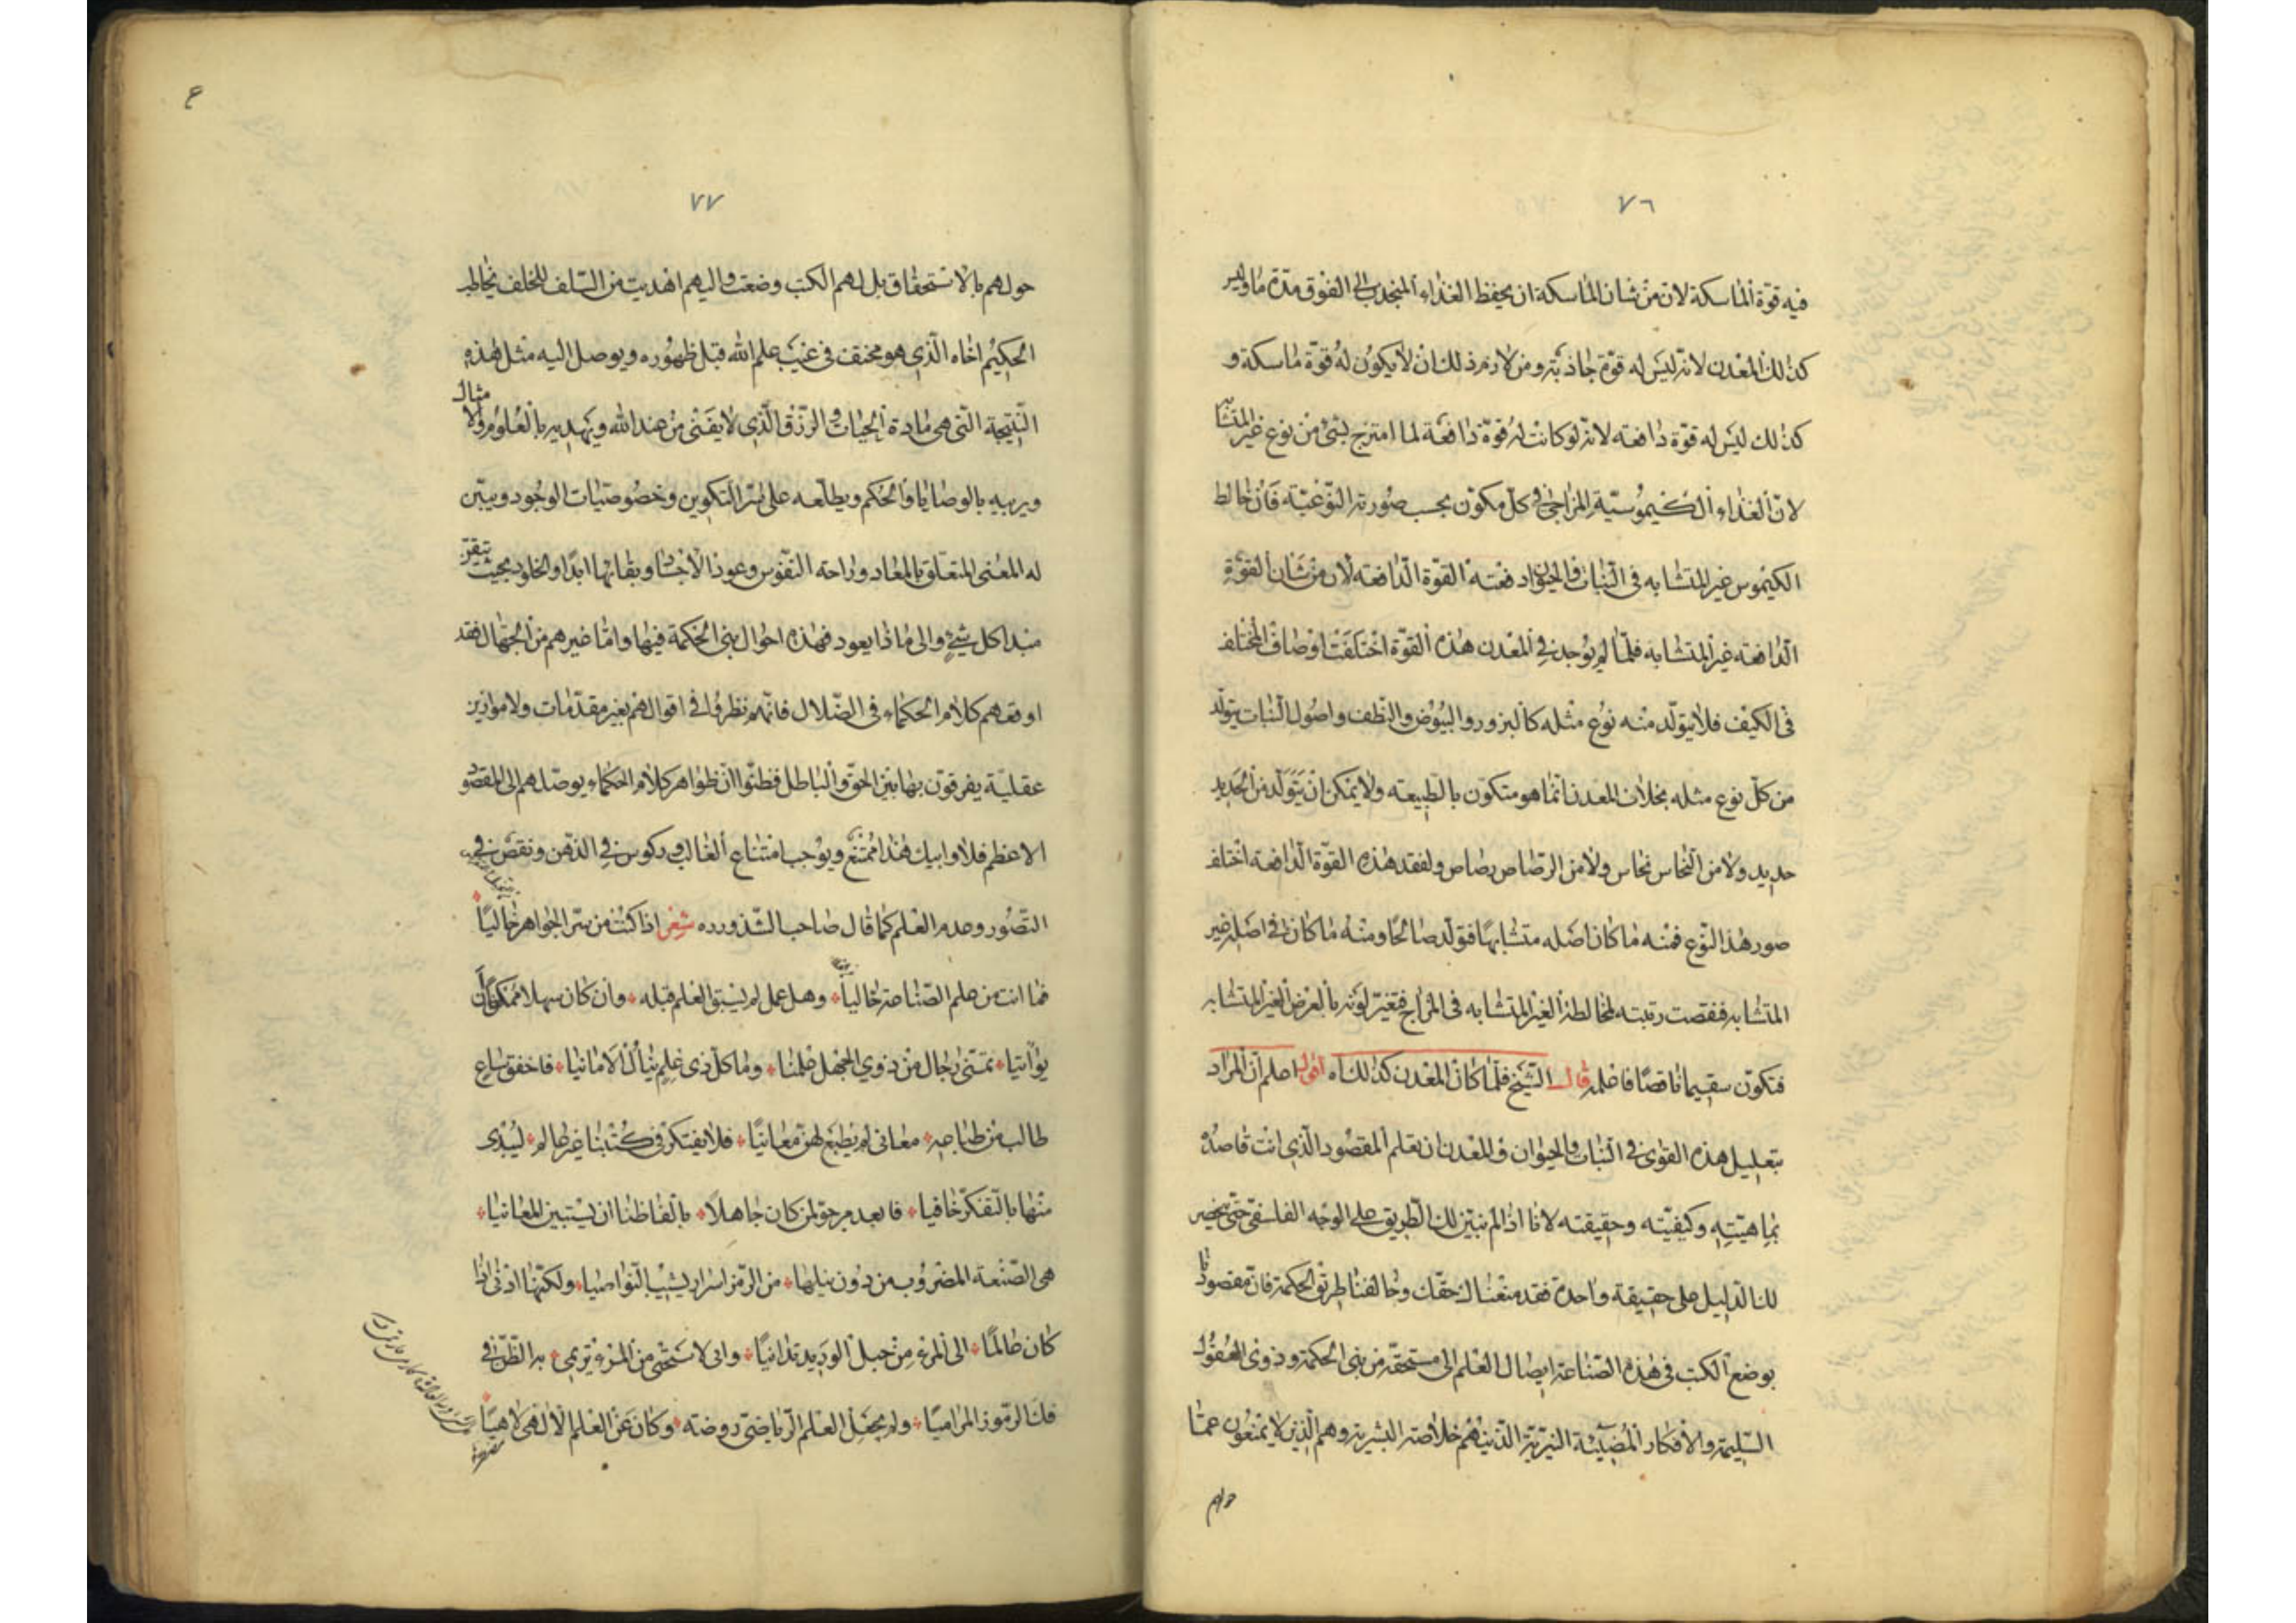 ٧٦
فيه قوّة الماسكة لان من شان الماسكة ان يحفظ الغذاء المنجذب الى الفوق مدّة ما وليس
كذلك المعدن لانه ليس له قوّة جاذبة ومن لازم ذلك ان لا يكون له قوّة ماسكة و
كذلك ليس له قوّة دافعه لانه لو كانت له قوّة دافعة لما امتزج بشئ من نوع غير المتشابه
لانّ الغذاء الكيموسيّة المزاجى فى كلّ مكوّن بحسب صورته النّوعيّة فان خالط
الكيموس غير المتشابه فى النبات والحيوان دفعته القوّة الدّافعه لان من شان القوّة
الدّافعه غير المتشابه فلمّا لم يوجد فى المعدن هذه القوّة اختلفت اوصاف المختلف
فى الكيف فلا يتولّد منه نوع مثله كالبزور والبيوض والنّطف واصول النبات يتولّد
من كلّ نوع مثله بخلاف المعدن انّما هو متكون بالطّبيعه ولا يمكن ان يتولّد من الحديد
حديد ولا من النّحاس نحاس ولا من الرّصاص رصاص ولفقد هذه القوّة الدّافعة اختلف
صور هذا النّوع فمنه ما كان اصله متشابهًا فتولّد صالحًا ومنه ما كان فى اصله غير
المتشابه فنقصت رتبته لمخالطة الغير المتشابه فى المزاج فتغيّر لونه بالعرض الغير المتشابه
فتكوّن سقيما ناقصًا فاعلمه قال الشّيخ فلمّا كان المعدن كذلك اه اقول اعلم ان المراد
بتعليل هذه القوى فى النبات والحيوان والمعدن ان تعلم المقصود الّذى انت قاصده
بماهيّته وكيفيّته وحقيقته لانّا اذا لم نبيّن لك الطّريق على الوجه الفلسفى حتّى
لك الدّليل على حقيقة واحدة فقد منعناك حقّك وخالفنا طريق الحكمة فانّ مقصودنا
بوضع الكتب فى هذه الصّناعة ايصال العلم الى مستحقّه من بنى الحكمة وذوى العقول
السّليمة والافكار المضيئة النيّرة الّذينهم خلاصة البشريّة وهم الّذين لا يمنعون عمّا
حولهم
٧٧
حولهم بالاستحقاق بل لهم الكتب وضعت واليهم اهديت من السّلف للخلف يخاطب
الحكيم اخاه الّذى هو مختف فى غيب علم الله قبل ظهوره ويوصل اليه مثل هذه
النّتيجة الّتى هى مادة الحيات والرّزق الّذى لا يفنى من عند الله ويمهد به بالعلوم والامثال
ويربيه بالوصايا والحكم ويطلعه على سرّ التكوين وخصوصيّات الوجود ويبيّن
له المعنى المتعلّق بالمعاد وراحة النّفوس وعود الاجساد وبقائها ابدًا والخلود بحيث تيقّن
مبدا كل شئ والى ما ذا يعود فهذه احوال بنى الحكمة فيها وامّا غيرهم من الجهال فقد
اوقعهم كلام الحكماء فى الضّلال فانّهم نظروا فى اقوالهم بغير مقدّمات ولا موازين
عقليّة يفرقون بها بين الحقّ والباطل فظنّوا انّ ظواهر كلام الحكماء يوصّلهم الى المقصود
الاعظم فلا وابيك هذا ممتنع ويوجب امتناع الغالب وركوس فى الذّهن ونقص فى
التّصور وعدم العلم كما قال صاحب الشّذور ره شعر اذا كنت من سرّ الجواهر خاليًا
فما انت من علم الصّناعة خاليًا وهل عمل لم يسبق العلم قبله وان كان سهلا ممكنا ان
يواتيا تمنّى رجال من ذوى الجهل علمنا وما كلّ ذى علم ينال الامانيا فاخفق ساع
طالب من طباعه معانى لم يطبع لهنّ معانيًا فلا يفتكر فى كتبنا غير عالم ليبدى
منها بالتّفكّر خافيا فابعد مرجوّ لمن كان جاهلًا بالفاظنا ان يستبين المعانيا
هى الصّنعة المضروب من دون نيلها من الرّمز اسرار يشيب النّواصيا ولكنّها ادنى اذا
كان عالمًا الى المرء من حبل الوريد تدانيًا وانى لاستحيى من المرء يرتمى به الظّنّ فى
فكّ الرّموز المراميًا ولم يجعل العلم الرّياضىّ روضته وكان عن العلم الالهى لاهيًا